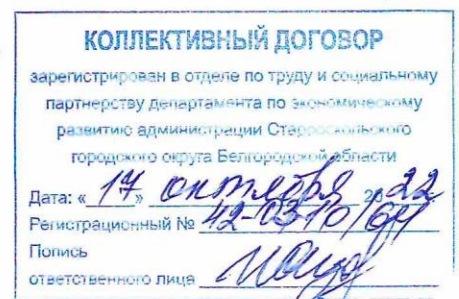 КОЛЛЕКТИВНЫЙ ДОГОВОР
зарегистрирован в отделе по труду и социальному
партнерству департамента по экономическому
развитию администрации Старооскольского
городского округа Белгородской области
Дата: «17» октября 2022
Регистрационный № 42-0310/64
Попись
ответственного лица